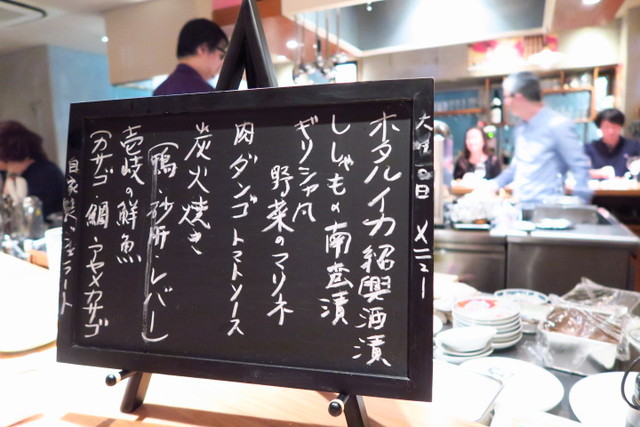 メニュー
ホタルイカ紹興酒漬
ししゃもの南蛮漬
ギリシャ風
野菜のマリネ
肉ダンゴ トマトソース
炭火焼き
(鴨・砂肝・レバー)
壱岐の鮮魚
(カサゴ・鯛・アヤメカサゴ
自家製ジェラート